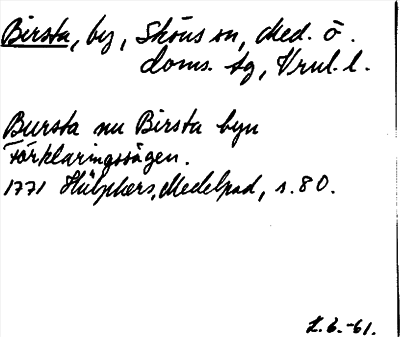 Birsta, by, Sköns sn, Med. ö.
doms. tg, Vrml. l.
Bursta nu Birsta byn
Förklaringssägen.
1771 Hülphers, Medelpad, s. 80.
L. b. -61.